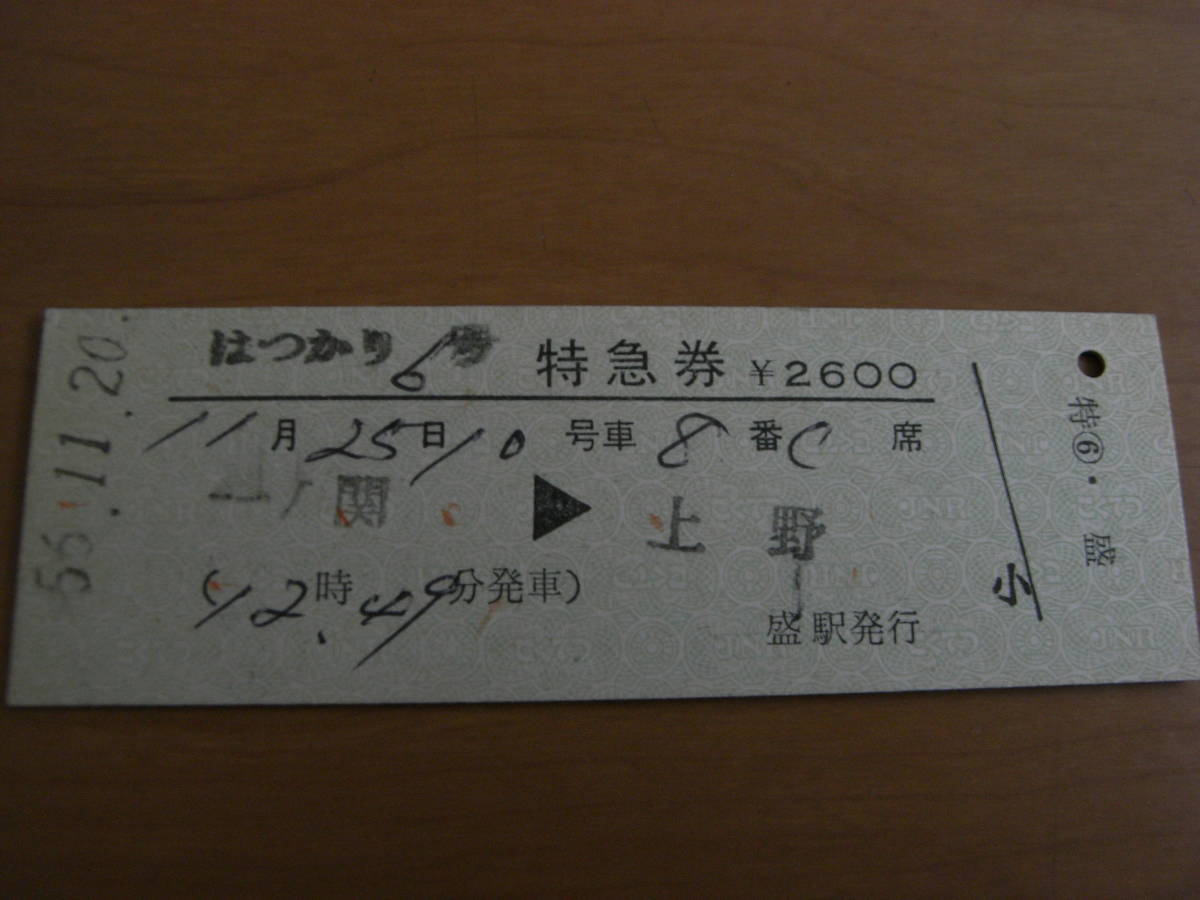 はつかり6号 特急券 ¥2600
11月25日10号車8番C席
一ノ関 ▶ 上野
(12時49分発車)
盛駅発行
56.11.20
小
特⑥・盛